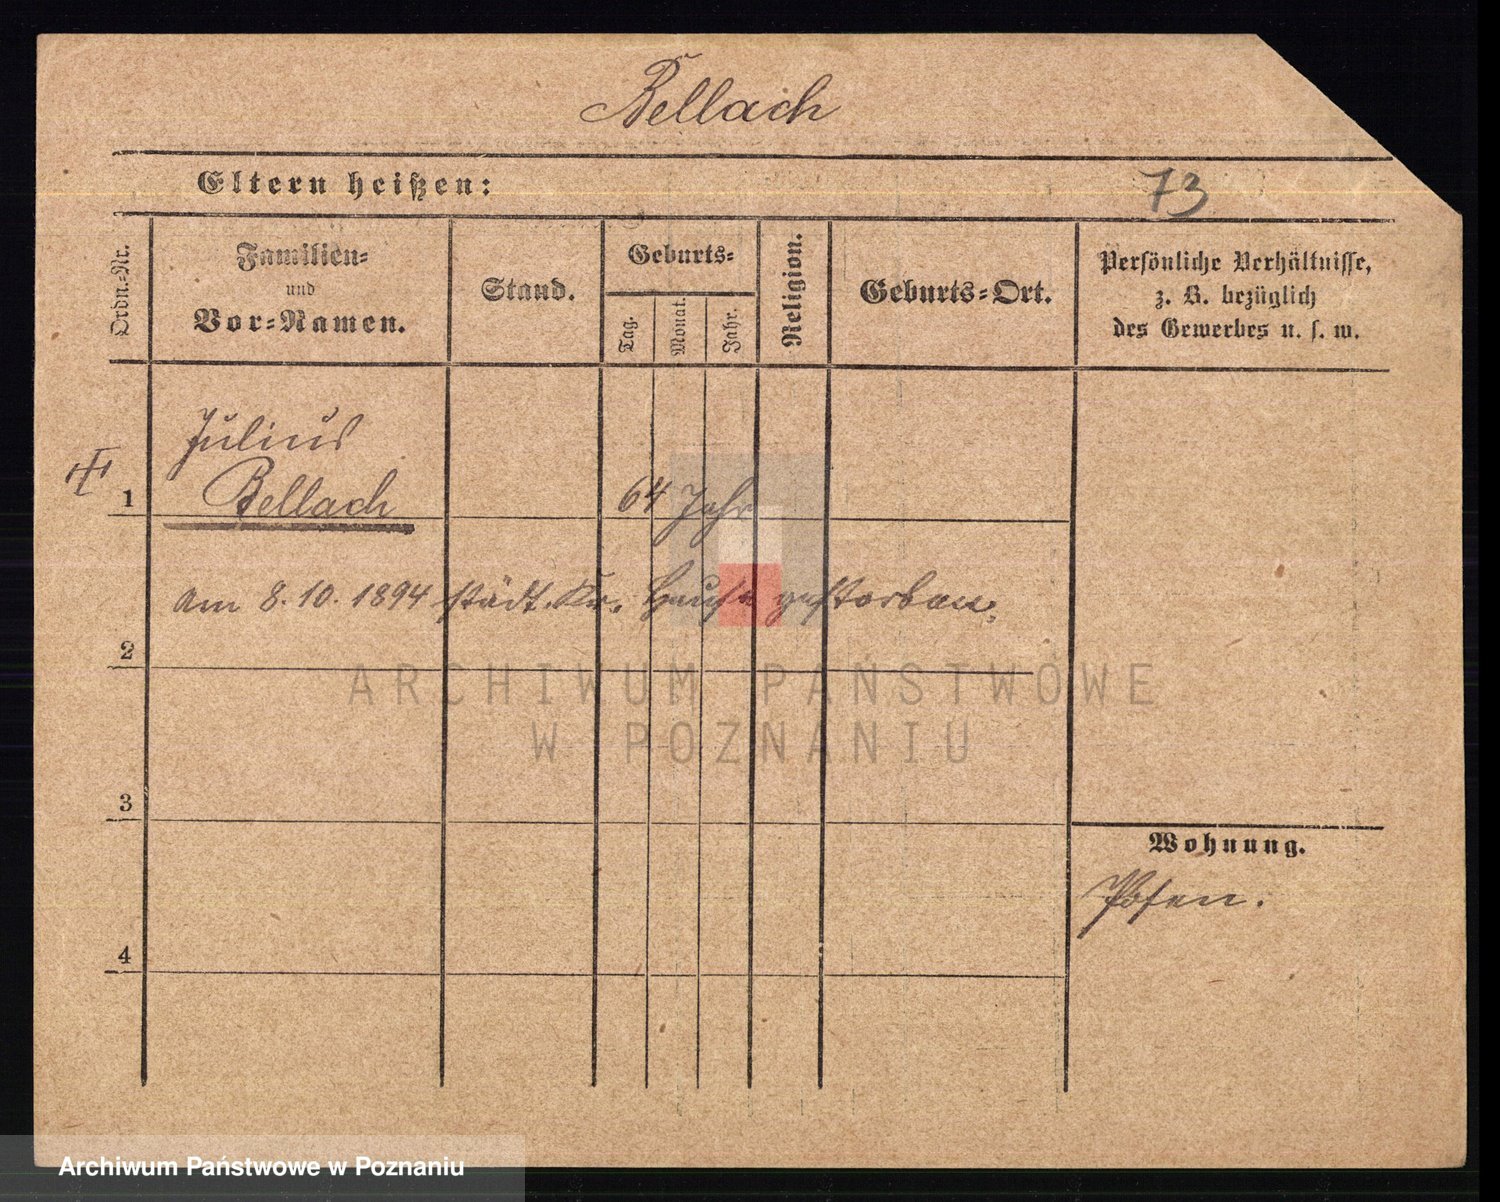 Bellach
Eltern heißen:
73
Ordn.-Nr.
Familien-
und
Vor-Namen.
Stand.
Geburts-
Tag.
Monat.
Jahr.
Religion.
Geburts-Ort.
Persönliche Verhältnisse,
z. B. bezüglich
des Gewerbes u. s. w.
Julius
1 Bellach 64 Jahr
am 8.10.1894 städt. Kr. Hause gestorben.
2
ARCHIWUM PAŃSTWOWE
W POZNANIU
3
Wohnung.
Posen.
4
Archiwum Państwowe w Poznaniu